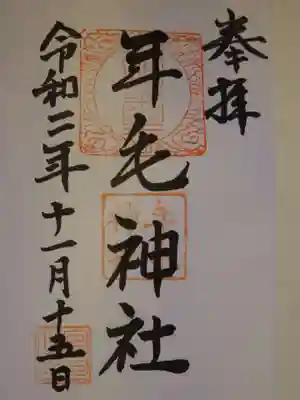 奉拝
年毛神社
令和二年十一月十五日